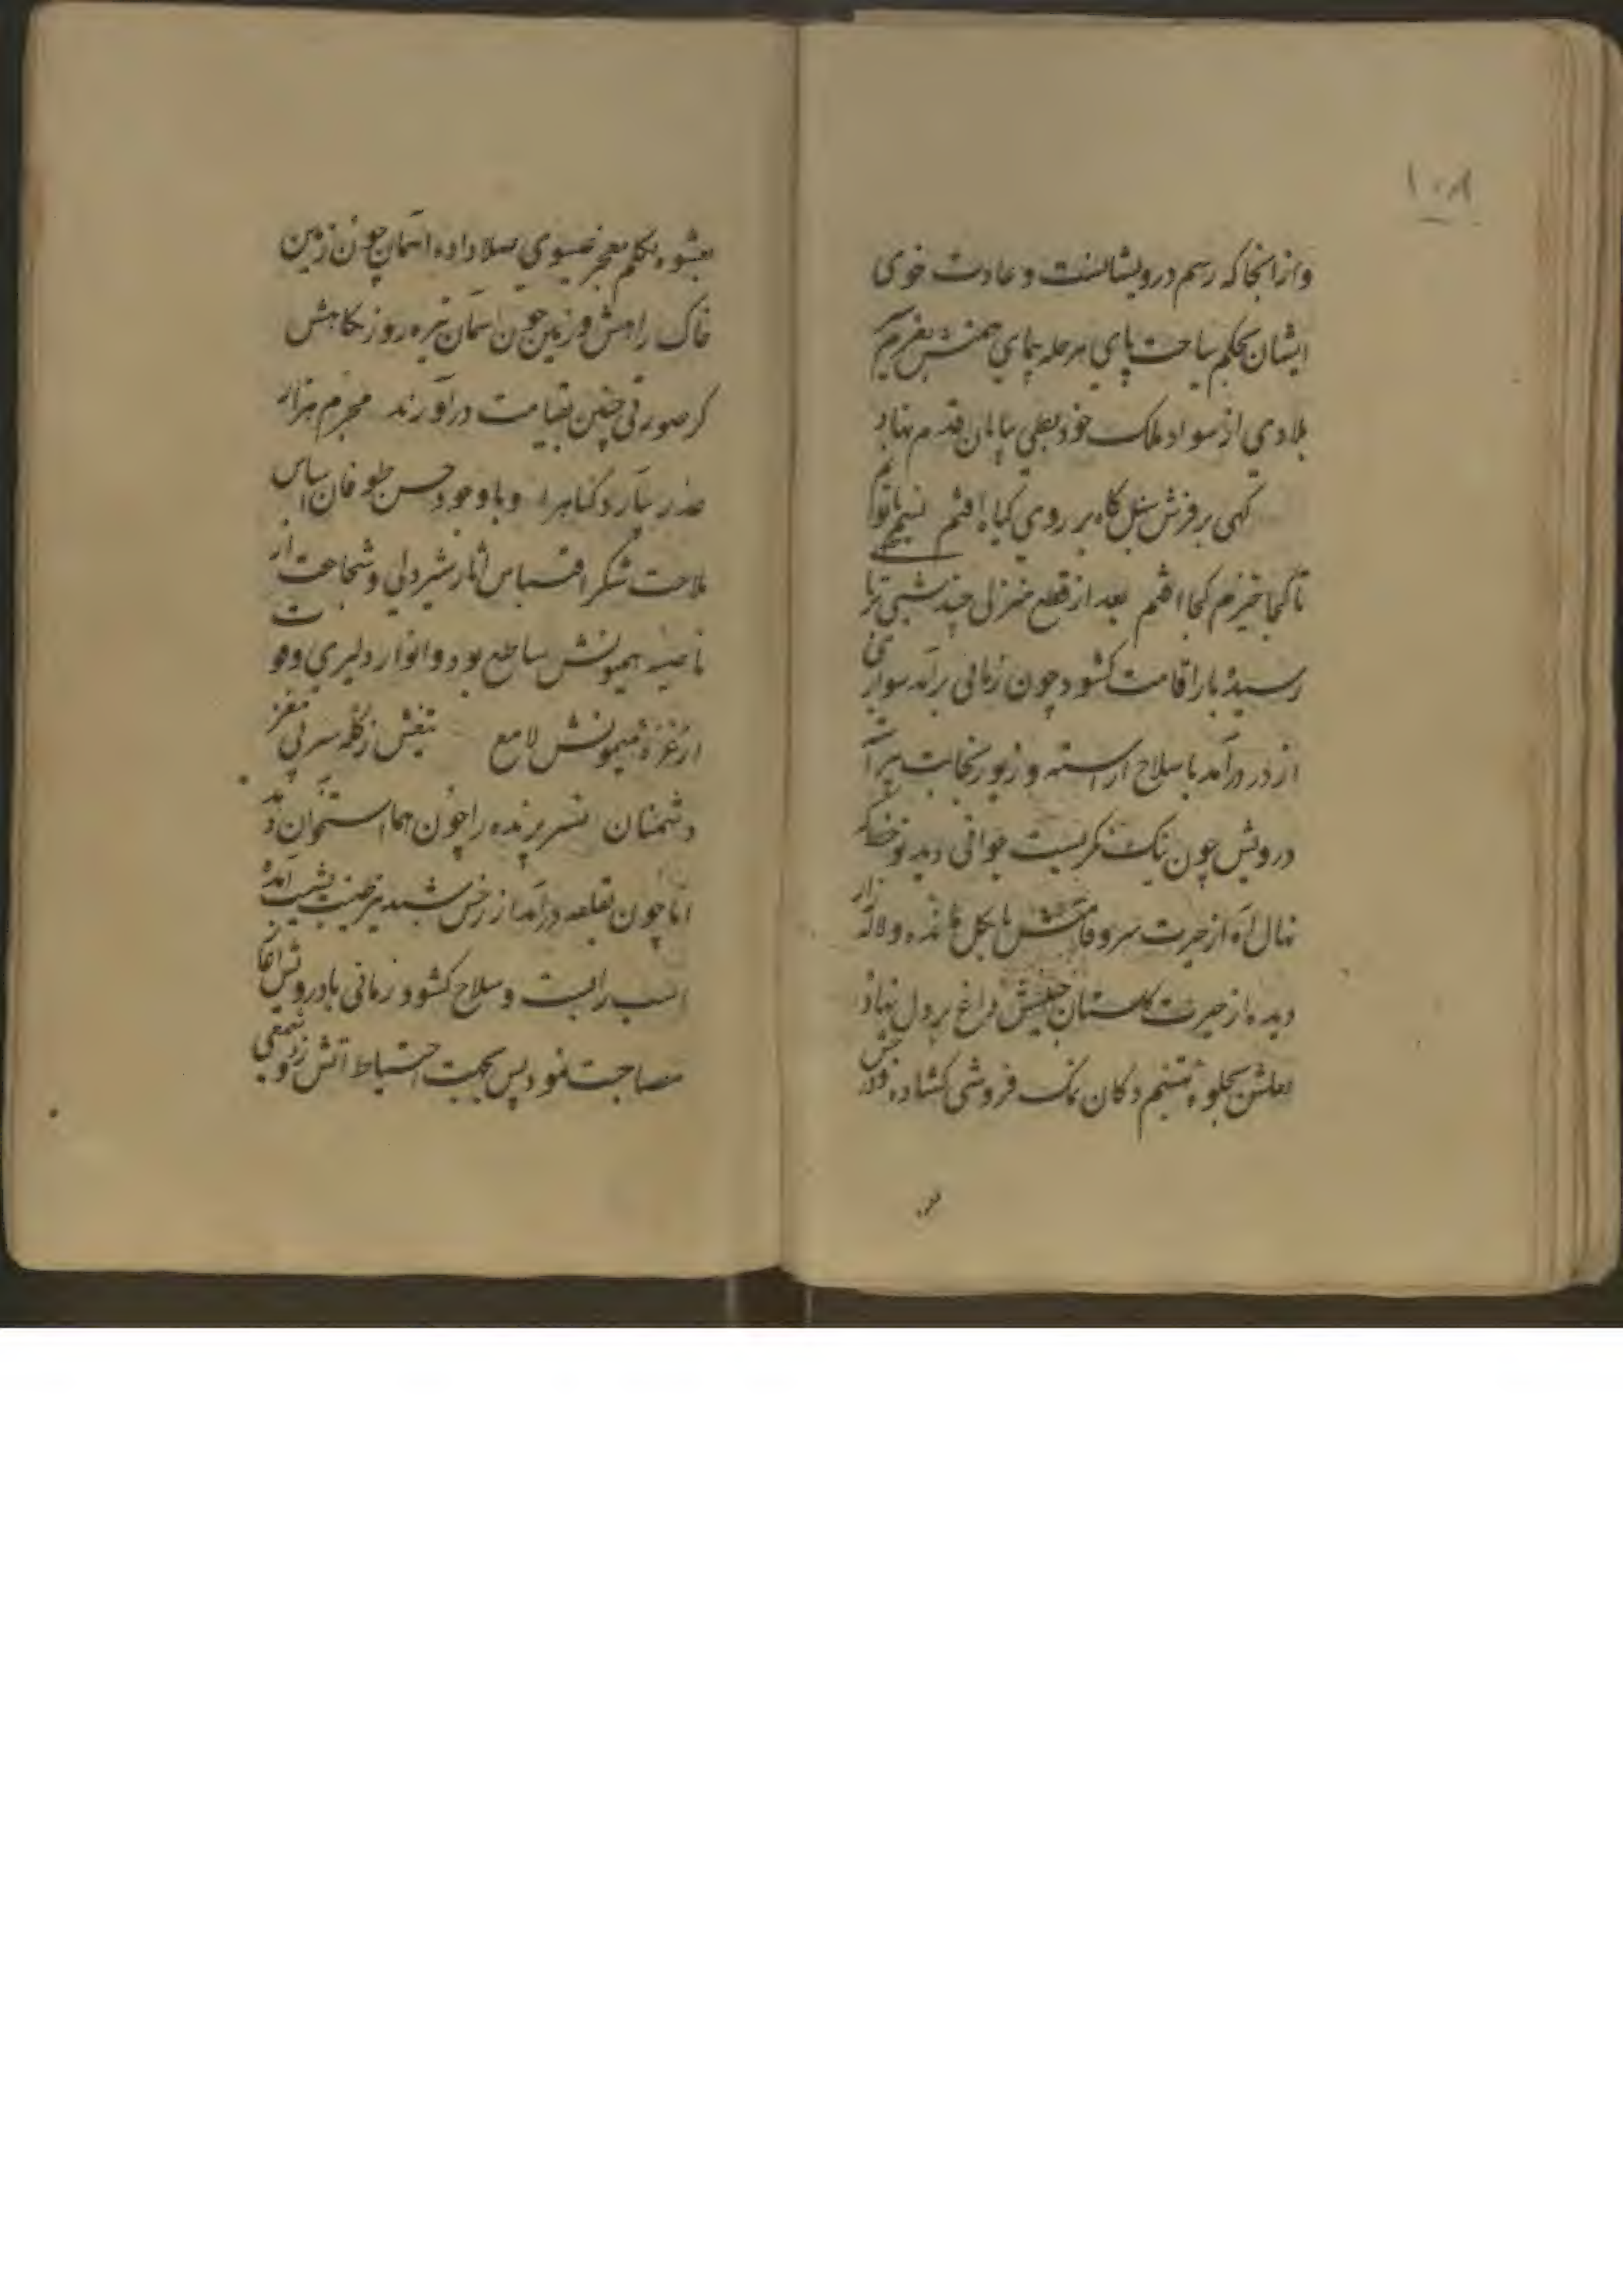 ١٠٨
وازانجا که رسم درویشانست و عادت خوی
ایشان بحکم سیاحت پای مرحله پیمای همتش بعزم
بلادی از سواد ملک خود بطی بیابان قدم نهاد
کهی بر فرش سنبل کاه بر روی کیاه افتم نسیم ناتوانم
تا کجا خیزم کجا افتم بعد از قطع منزلی چند شبی
رسید بار اقامت کشود چون زمانی برآمد سواری
از در درآمد با سلاح اراسته و زیور نجابت پیراسته
درویش چون نیک نکریست جوانی دید نوخط که
نهال آه از حیرت سرو قامتش پا بکل مانده و لاله زار
دیده از حیرت کلستان جبینش داغ بر دل نهاده
لعلش بجلوه تبسم دکان نمک فروشی کشاده
بعشوه تکلم معجز عیسوی صلا داده اسمان چون زمین
خاک راهش و زمین چون اسمان تیره روز نکاهش
کر صورتی چنین بقیامت درآورند مجرم هزار
عذر بیارد کناه را و با وجود حسن طوفان اساس
ملاحت شکر اقتباس اثار شیردلی و شجاعت از
ناصیه همیونش ساطع بود و انوار دلیری و
از غره میمونش لامع تیغش ز کله سر پی مغز
دشمنان نسر پرنده را چون هما استخوان دهد
اما چون بقلعه درآمد از رخش
اسب را بست و سلاح کشود و زمانی با درویش اغاز
مصاحبت نمود پس بجهت احتیاط اتش زد و شمعی